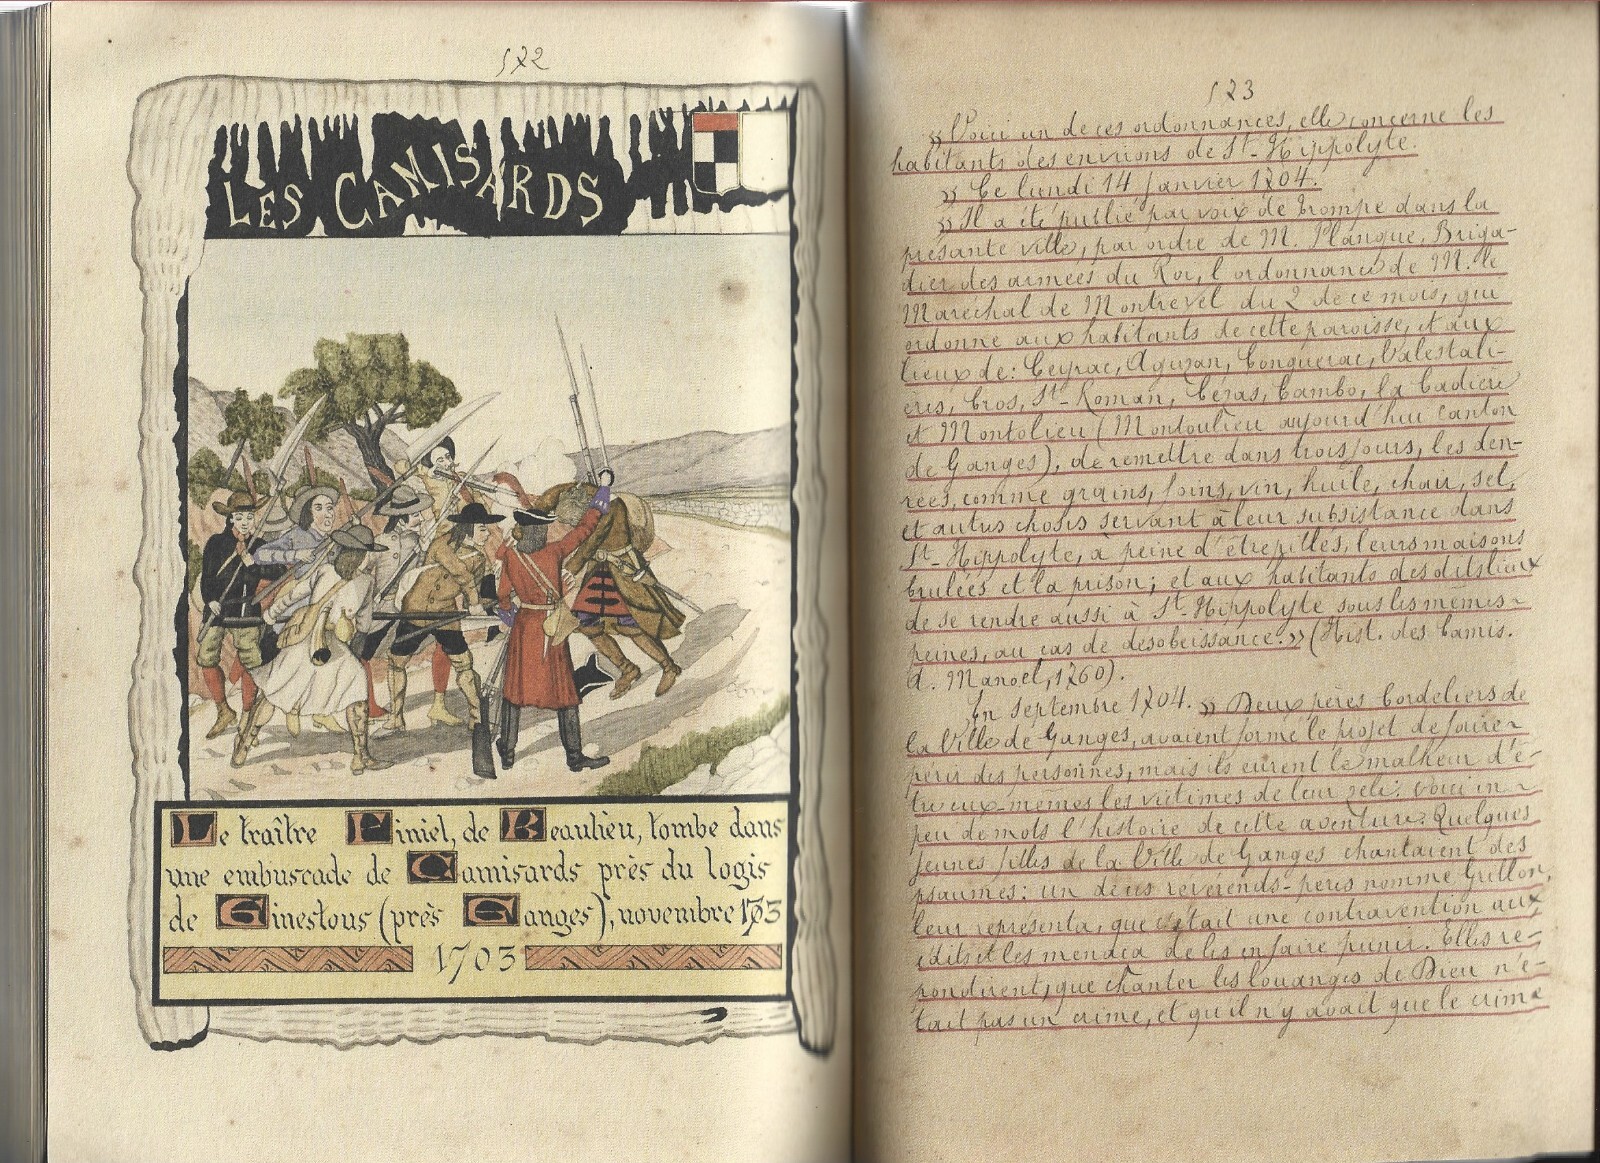 572
LES CAMISARDS
Le traître Finiel, de Beaulieu, tombe dans
une embuscade de Camisards près du logis
de Ginestous (près Ganges), novembre 1703
1703
573
» Voici un de ces ordonnances, elle concerne les
habitants des environs de St-Hippolyte.
» Ce lundi 14 Janvier 1704.
» Il a été publié par voix de trompe dans la
présante ville, par ordre de M. Planque, Briga-
dier des armées du Roi, l'ordonnance de M. le
Maréchal de Montrevel du 2 de ce mois, qui
ordonne aux habitants de cette paroisse, et aux
lieux de: Ceyrac, Aguzan, Conquerac, Valestali-
eres, Cros, St-Roman, Céras, Cambo, la Cadiere
et Montolieu (Montoulieu aujourd'hui canton
de Ganges), de remettre dans trois jours, les den-
rées, comme grains, foins, vin, huile, chair, sel,
et autres choses servant à leur subsistance dans
St-Hippolyte, à peine d'être pillés, leurs maisons
brulées et la prison; et aux habitants des dits lieux
de se rendre aussi à St-Hippolyte sous les memes-
peines, au cas de desobeissance.» (Hist. des Camis.
A. Manoël, 1760).
En septembre 1704. » Deux pères Cordeliers de
la Ville de Ganges, avaient formé le projet de faire
perir des personnes, mais ils eurent le malheur d'ê-
tre eux-mêmes les victimes de leur zele: voici in
peu de mots l'histoire de cette aventure. Quelques
jeunes filles de la Ville de Ganges chantaient des
psaumes: un de ces révérends-peres nommé Grillon,
leur representa, que c'etait une contravention aux
édits et les menaça de les en faire punir. Elles re-
pondirent, que chanter les louanges de Dieu n'e-
tait pas un crime, et qu'il n'y avait que le crime